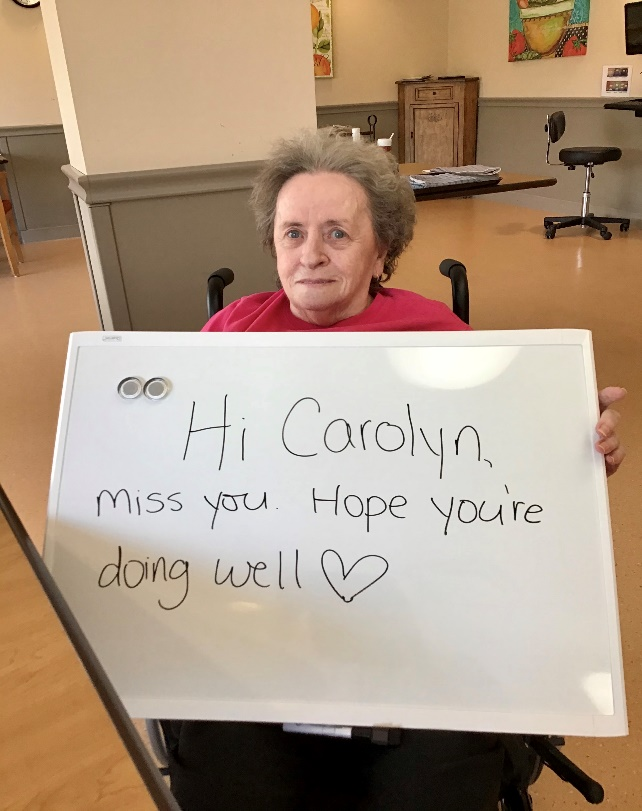 Hi Carolyn,
miss you. Hope you're
doing well ♡